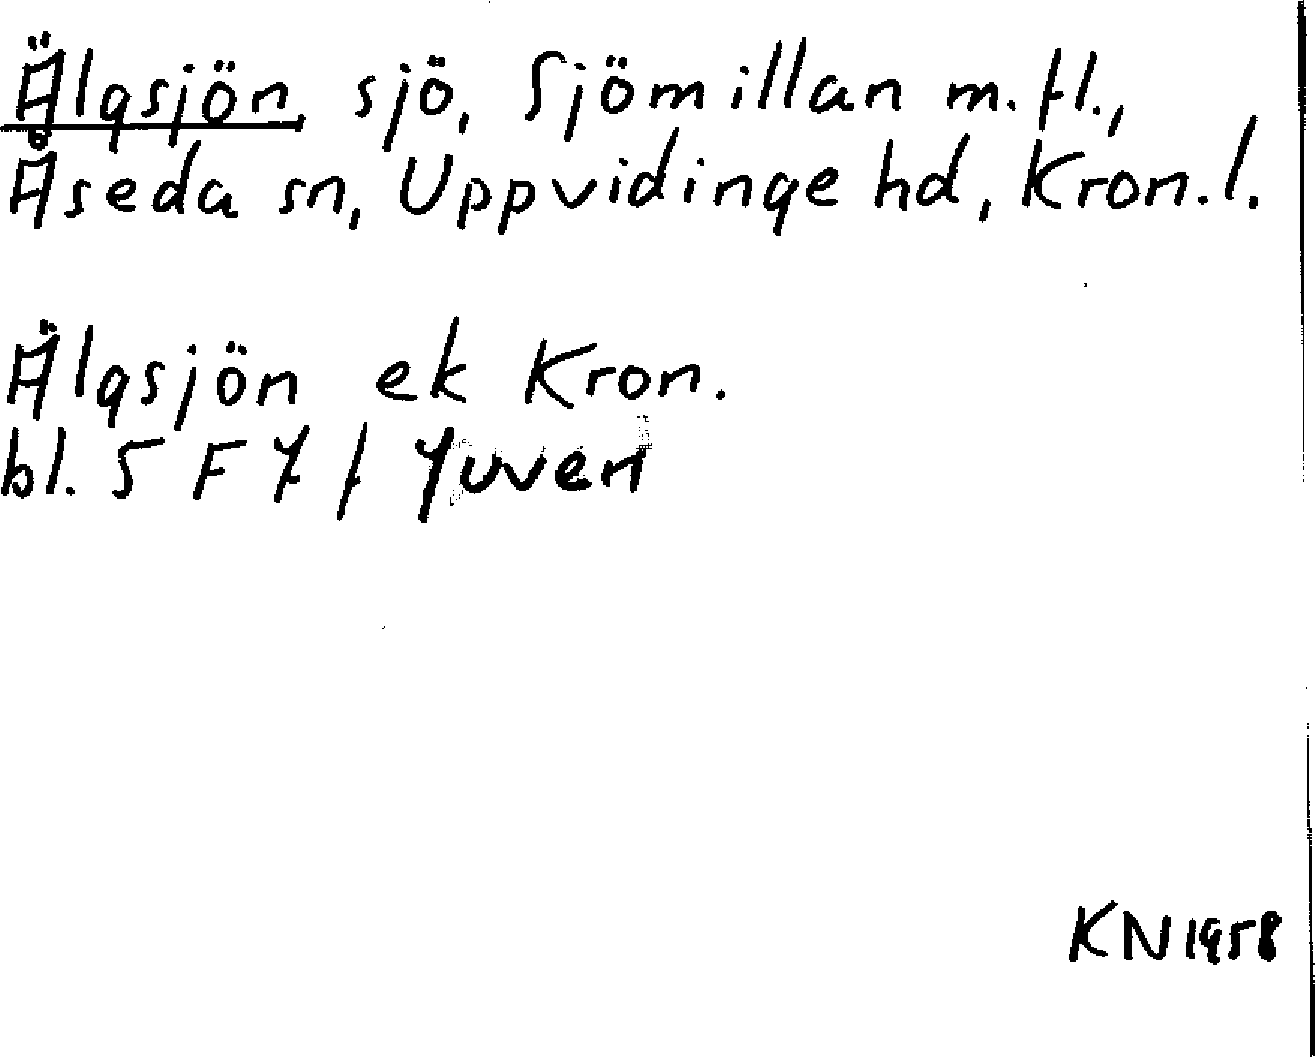 Älgsjön, sjö, Sjömillan m.fl.,
Åseda sn, Uppvidinge hd, Kron.l.
Älgsjön ek Kron.
bl. 5 F 7 f Yuven
KN 1958